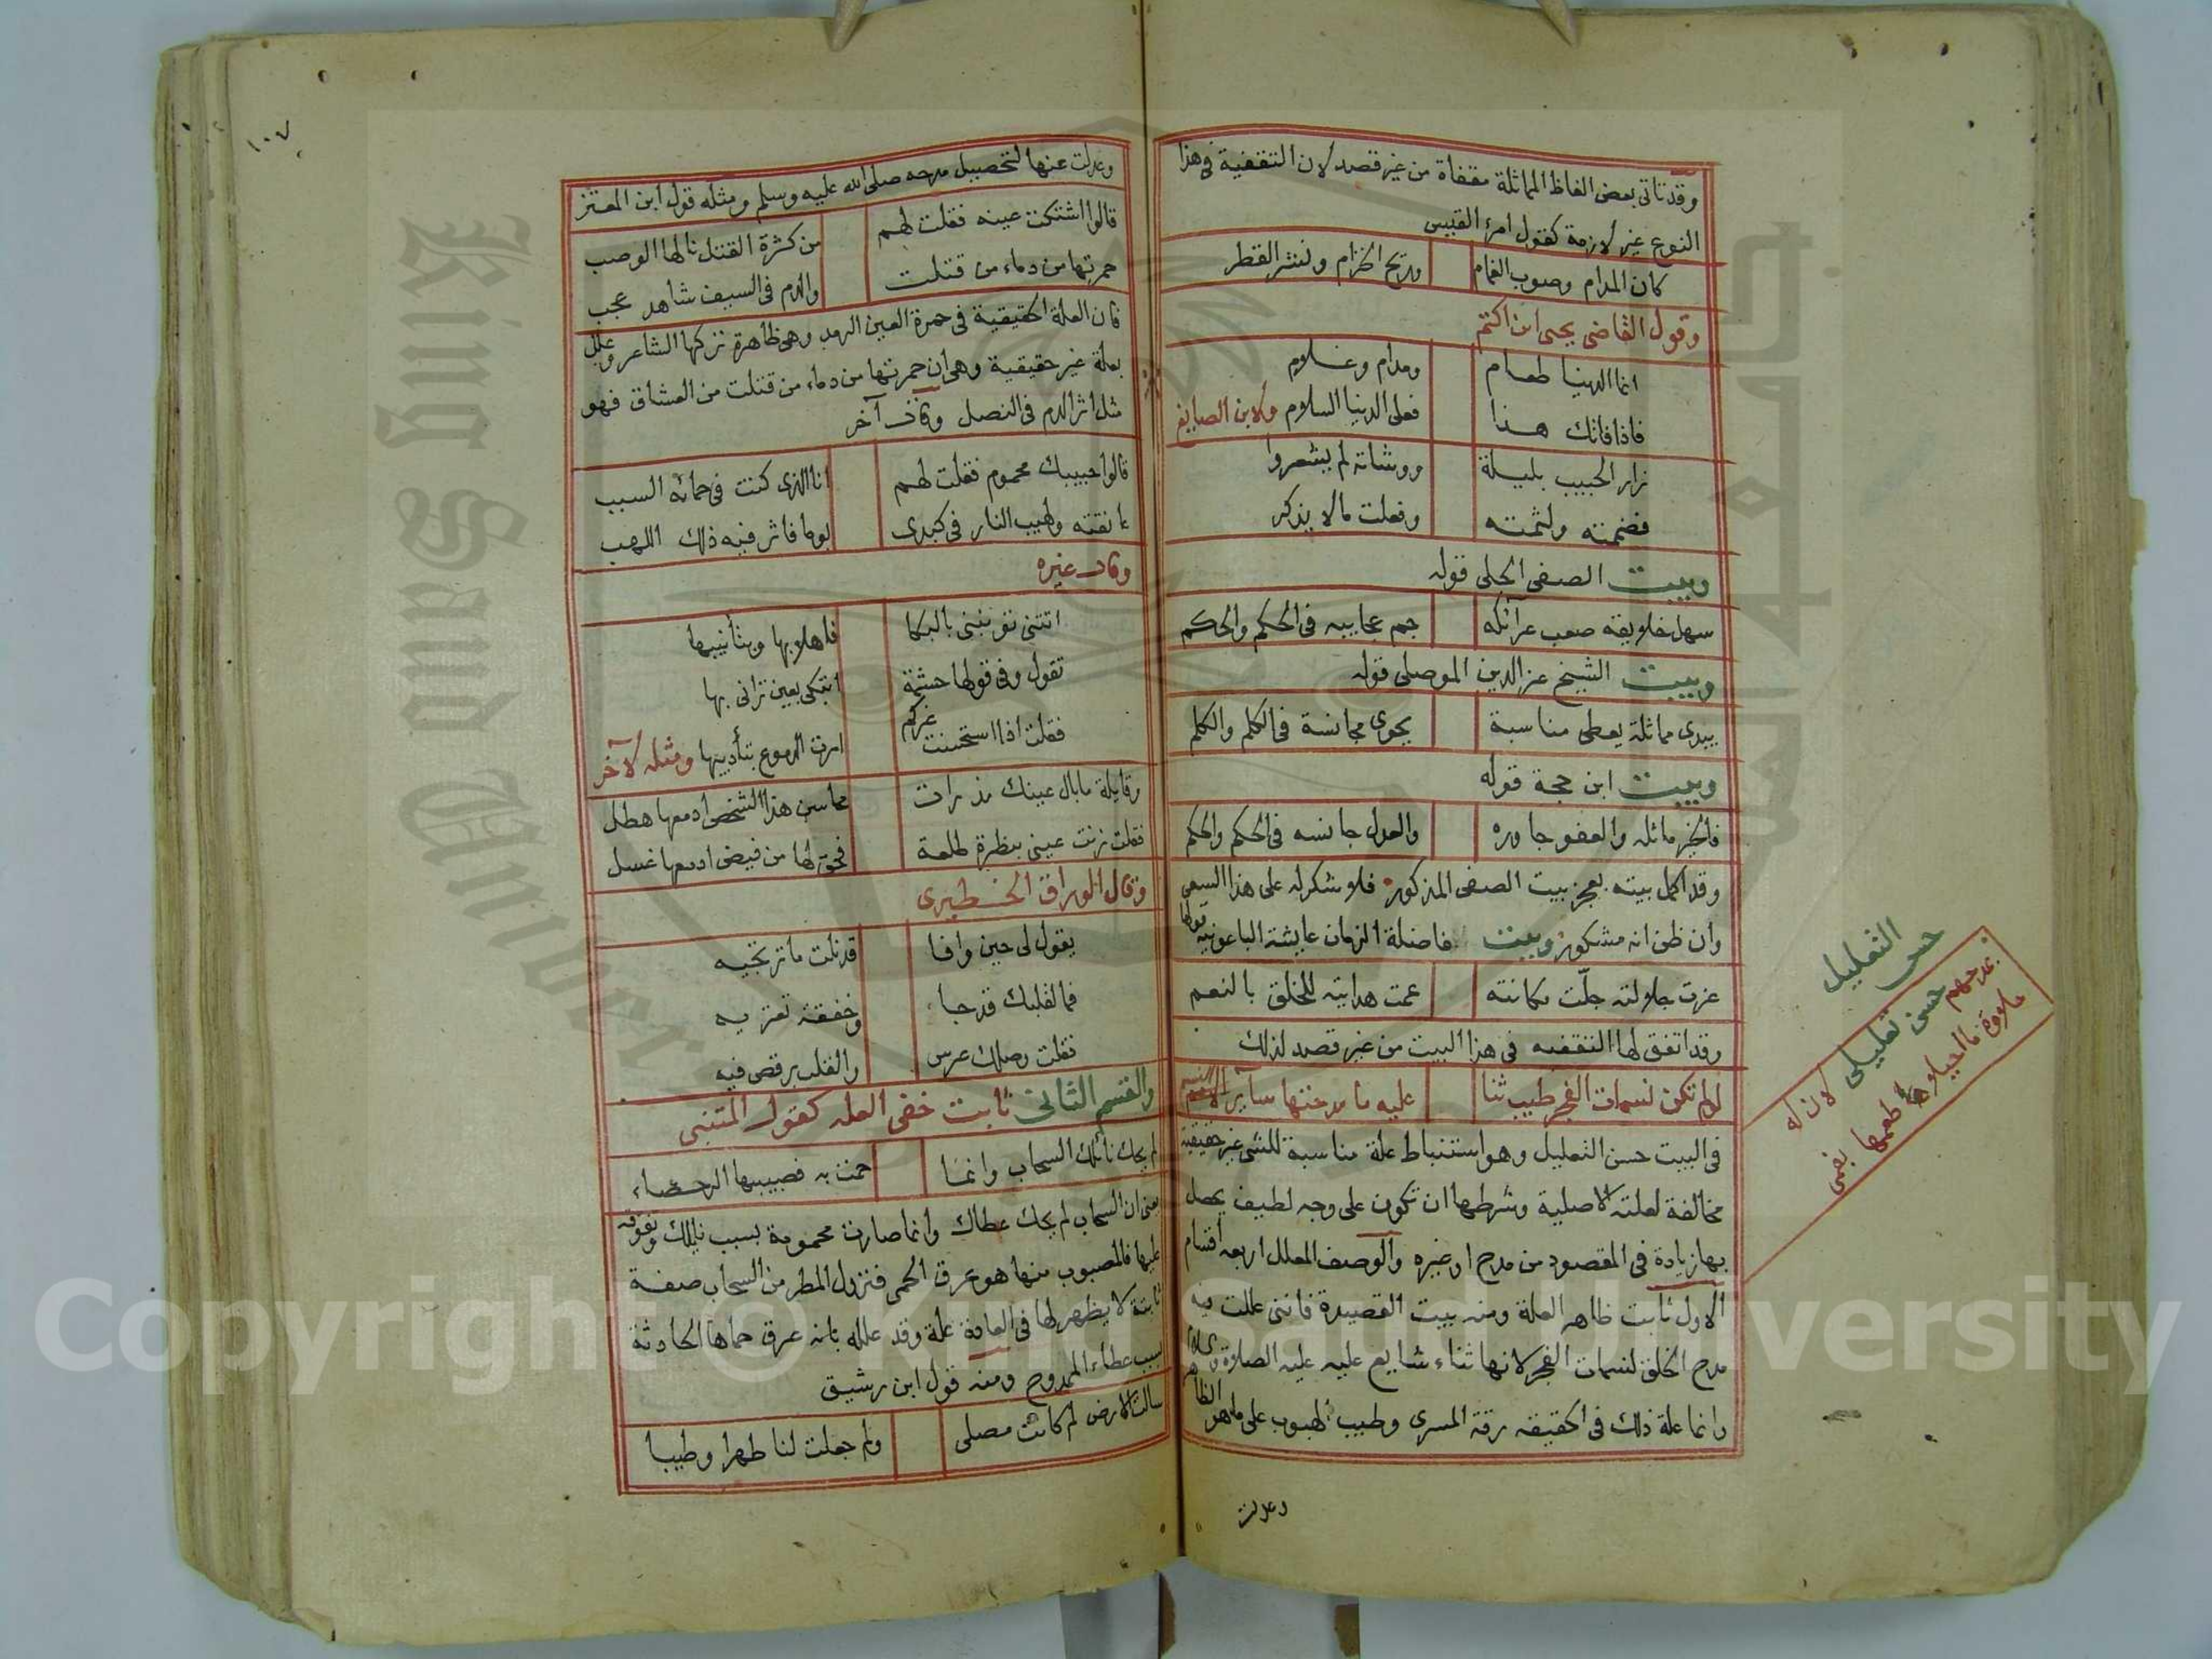 وقد تاتى بعض الفاظ المماثلة مقفاة من غير قصد لان التقفية فى هذا
النوع غير لازمة كقول امرء القيس
كان المدام وصوب الغمام وريح الخزام ونشر القطر
وقول القاضى يحيى ابن اكتم
انما الدنيا طعام ومدام وغلام
فاذا فاتك هذا فعلى الدنيا السلام ولابن الصايغ
زار الحبيب بليلة ووشاته لم يشعروا
فضممته ولثمته وفعلت ما لا يذكر
وبيت الصفى الحلى قوله
سهل خلايقه صعب عرائكه جم عجايبه فى الحكم والحكم
وبيت الشيخ عز الدين الموصلى قوله
يبدى مماثلة يعطى مناسبة يحوى مجانسة فى الكلم والكلم
وبيت ابن حجة قوله
فالخير ماثله والعفو جاوره والعدل جانسه فى الحكم والحكم
وقد اكمل بيته بعجز بيت الصفى المذكور فلا شكر له على هذا السعى
وان ظن انه مشكور وبيت فاضلة الزمان عايشة الباعونية قولها
عزت جلالته جلّت مكانته عمت هدايته للخلق بالنعم
وقد اتفق لها التقفيه فى هذا البيت من غير قصد لذلك
لو لم تكن نسمات الفجر طيب ثنا عليه ما مدحتها سآير
فى البيت حسن التعليل وهو استنباط علة مناسبة للشى غير حقيقية
مخالفة لعلته الاصلية وشرطها ان تكون على وجه لطيف يحصل
بها زيادة فى المقصود من مدح او غيره والوصف المعلل اربعه اقسام
الاول ثابت ظاهر العلة ومنه بيت القصيدة فاننى عللت فيه
مدح الخلق لنسمات الفجر لانها ثناء شايع عليه عليه الصلاة والسلام
وانما علة ذلك فى الحقيقه رقة المسرى وطيب الهبوب على ما هو الظاهر
وعدلت
حسن التعليل
مدحهم حسن تعليلى لان له
وعدلت عنها لتحصيل مدحه صلى الله عليه وسلم ومثله قول ابن المعتز
قالوا اشتكت عينه فقلت لهم من كثرة القتل نالها الوصب
حمرتها من دماء من قتلت والدم فى السيف شاهد عجب
فان العلة الحقيقية فى حمرة العين الرمد وهى ظاهرة تركها الشاعر وعلل
بعلة غير حقيقية وهى ان حمرتها من دماء من قتلت من العشاق فهو
مثل اثر الدم فى النصل وقال آخر
قالوا حبيبك محموم فقلت لهم انا الذى كنت فى حمائه السبب
عانقته ولهيب النار فى كبدى يوما فاثر فيه ذلك اللهب
وقال غيره
اتتنى تؤنبنى بالبكا فاهلا بها وبتأنيبها
تقول وفى قولها حشمة اتبكى بعين ترانى بها
فقلت اذا استحسنت غيركم امرت الدموع بتأديبها ومثله لآخر
وقايلة ما بال عينك مذ رات محاسن هذا الشخص ادمعها هطل
فقلت زنت عينى بنظرة طلعة فحق لها من فيض ادمعها غسل
وقال الوراق الخطيرى
يقول لى حين وافا قد نلت ما ترتجيه
فما لقلبك قد جا وخفقه تعتريه
فقلت وصلك عرس والقلب يرقص فيه
والقسم الثانى ثابت خفى العله كقول المتنبى
لم يحك نائلك السحاب وانما حمت به فصبيبها الرحضاء
يعنى ان السحاب لم يحك عطاك وانما صارت محمومة بسبب نايلك وتفوقه
عليها فالمصبوب منها هو عرق الحمى فنزول المطر من السحاب صفة
ثابتة لا يظهر لها فى العادة علة وقد علله بانه عرق حماها الحادثة
بسبب عطاء الممدوح ومنه قول ابن رشيق
سالت الارض لم كانت مصلى ولم جعلت لنا طهرا وطيبا
١٠٧
King Saud University
Copyright © King Saud University